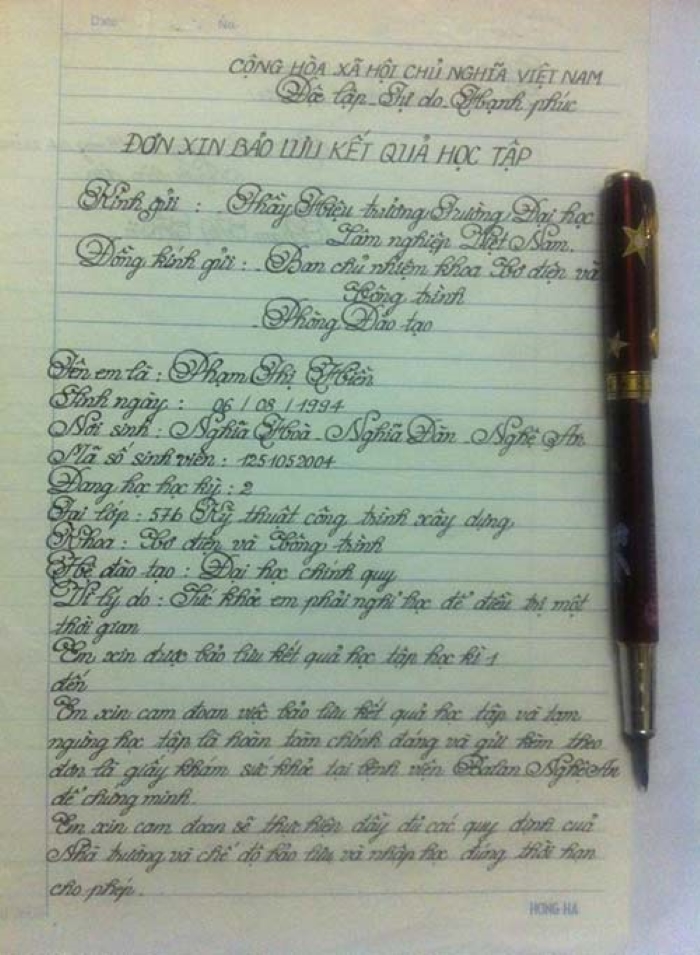 CỘNG HÒA XÃ HỘI CHỦ NGHĨA VIỆT NAM
Độc lập - Tự do - Hạnh phúc
ĐƠN XIN BẢO LƯU KẾT QUẢ HỌC TẬP
Kính gửi : - Thầy Hiệu trưởng Trường Đại học
Lâm nghiệp Việt Nam.
Đồng kính gửi : - Ban chủ nhiệm khoa Cơ điện và
Công trình
- Phòng Đào tạo
Tên em là : Phạm Thị Hiền
Sinh ngày : 06 / 08 / 1994
Nơi sinh : Nghĩa Hoà - Nghĩa Đàn - Nghệ An
Mã số sinh viên : 1251052004
Đang học học kỳ : 2
Tại lớp : 57b Kỹ thuật công trình xây dựng
Khoa : Cơ điện và Công trình
Hệ đào tạo : Đại học chính quy
Vì lý do : Sức khỏe em phải nghỉ học để điều trị một
thời gian
Em xin được bảo lưu kết quả học tập học kì 1
đến
Em xin cam đoan việc bảo lưu kết quả học tập và tạm
ngừng học tập là hoàn toàn chính đáng và gửi kèm theo
đơn là giấy khám sức khỏe tại bệnh viện Balan Nghệ An
để chứng minh.
Em xin cam đoan sẽ thực hiện đầy đủ các quy định của
Nhà trường và chế độ bảo lưu và nhập học đúng thời hạn
cho phép.
HONG HA